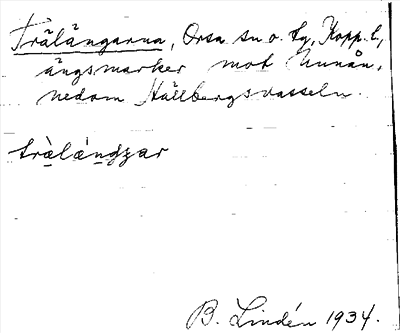 Trälängarna, Orsa sn o. tg, Kopp. l,
ängsmarker mot Unnån,
nedom Hällbergsvasseln.
trä̀lä́ngɟar
B. Lindén 1934.